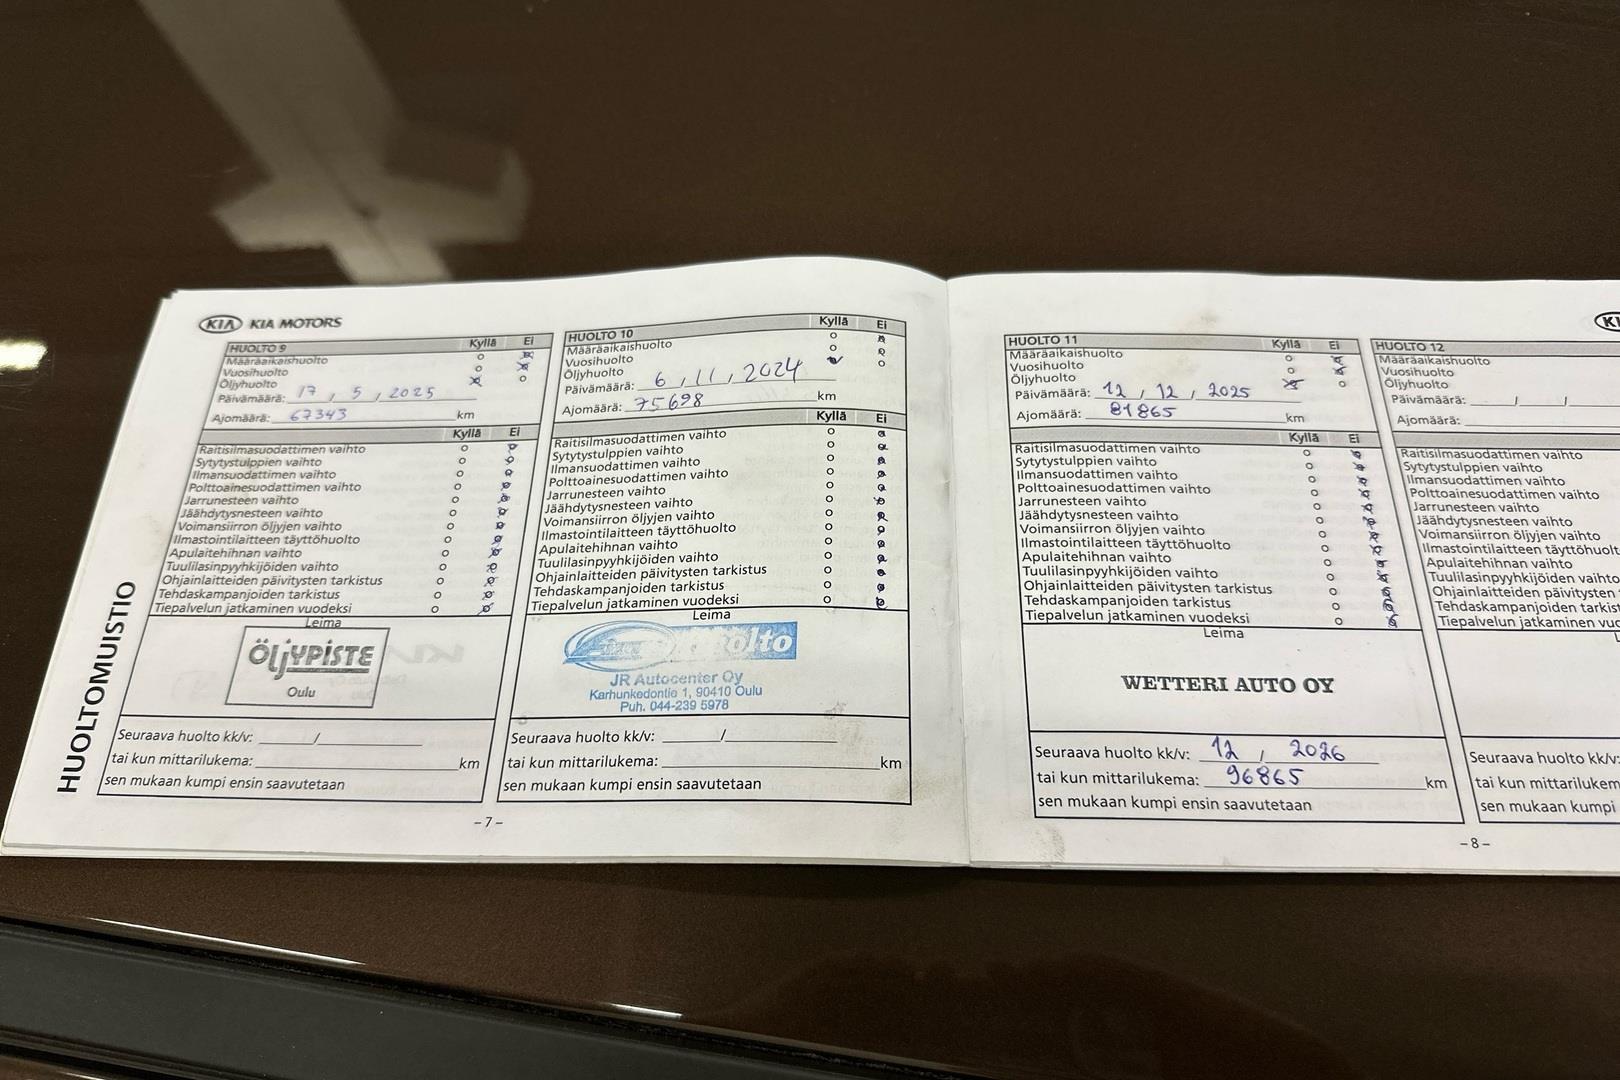 KIA KIA MOTORS
HUOLTOMUISTIO
HUOLTO 9 Kyllä Ei
Määräaikaishuolto
Vuosihuolto
Öljyhuolto
Päivämäärä: 17, 5, 2025
Ajomäärä: 67343 km
Kyllä Ei
Raitisilmasuodattimen vaihto
Sytytystulppien vaihto
Ilmansuodattimen vaihto
Polttoainesuodattimen vaihto
Jarrunesteen vaihto
Jäähdytysnesteen vaihto
Voimansiirron öljyjen vaihto
Ilmastointilaitteen täyttöhuolto
Apulaitehihnan vaihto
Tuulilasinpyyhkijöiden vaihto
Ohjainlaitteiden päivitysten tarkistus
Tehdaskampanjoiden tarkistus
Tiepalvelun jatkaminen vuodeksi
Leima
ÖLJYPISTE
Oulu
Seuraava huolto kk/v: /
tai kun mittarilukema: km
sen mukaan kumpi ensin saavutetaan
HUOLTO 10 Kyllä Ei
Määräaikaishuolto
Vuosihuolto
Öljyhuolto
Päivämäärä: 6, 11, 2024
Ajomäärä: 75698 km
Kyllä Ei
Raitisilmasuodattimen vaihto
Sytytystulppien vaihto
Ilmansuodattimen vaihto
Polttoainesuodattimen vaihto
Jarrunesteen vaihto
Jäähdytysnesteen vaihto
Voimansiirron öljyjen vaihto
Ilmastointilaitteen täyttöhuolto
Apulaitehihnan vaihto
Tuulilasinpyyhkijöiden vaihto
Ohjainlaitteiden päivitysten tarkistus
Tehdaskampanjoiden tarkistus
Tiepalvelun jatkaminen vuodeksi
Leima
JR Autocenter Oy
Karhunkedontie 1, 90410 Oulu
Puh. 044-239 5978
Seuraava huolto kk/v: /
tai kun mittarilukema: km
sen mukaan kumpi ensin saavutetaan
- 7 -
HUOLTO 11 Kyllä Ei
Määräaikaishuolto
Vuosihuolto
Öljyhuolto
Päivämäärä: 12, 12, 2025
Ajomäärä: 81865 km
Kyllä Ei
Raitisilmasuodattimen vaihto
Sytytystulppien vaihto
Ilmansuodattimen vaihto
Polttoainesuodattimen vaihto
Jarrunesteen vaihto
Jäähdytysnesteen vaihto
Voimansiirron öljyjen vaihto
Ilmastointilaitteen täyttöhuolto
Apulaitehihnan vaihto
Tuulilasinpyyhkijöiden vaihto
Ohjainlaitteiden päivitysten tarkistus
Tehdaskampanjoiden tarkistus
Tiepalvelun jatkaminen vuodeksi
Leima
WETTERI AUTO OY
Seuraava huolto kk/v: 12, 2026
tai kun mittarilukema: 96865 km
sen mukaan kumpi ensin saavutetaan
HUOLTO 12
Määräaikaishuolto
Vuosihuolto
Öljyhuolto
Päivämäärä: / /
Ajomäärä:
Raitisilmasuodattimen vaihto
Sytytystulppien vaihto
Ilmansuodattimen vaihto
Polttoainesuodattimen vaihto
Jarrunesteen vaihto
Jäähdytysnesteen vaihto
Voimansiirron öljyjen vaihto
Ilmastointilaitteen täyttöhuolt
Apulaitehihnan vaihto
Tuulilasinpyyhkijöiden vaihto
Ohjainlaitteiden päivitysten
Tehdaskampanjoiden tarkistus
Tiepalvelun jatkaminen vuo
Seuraava huolto kk/v:
tai kun mittarilukem
sen mukaan kumpi
- 8 -